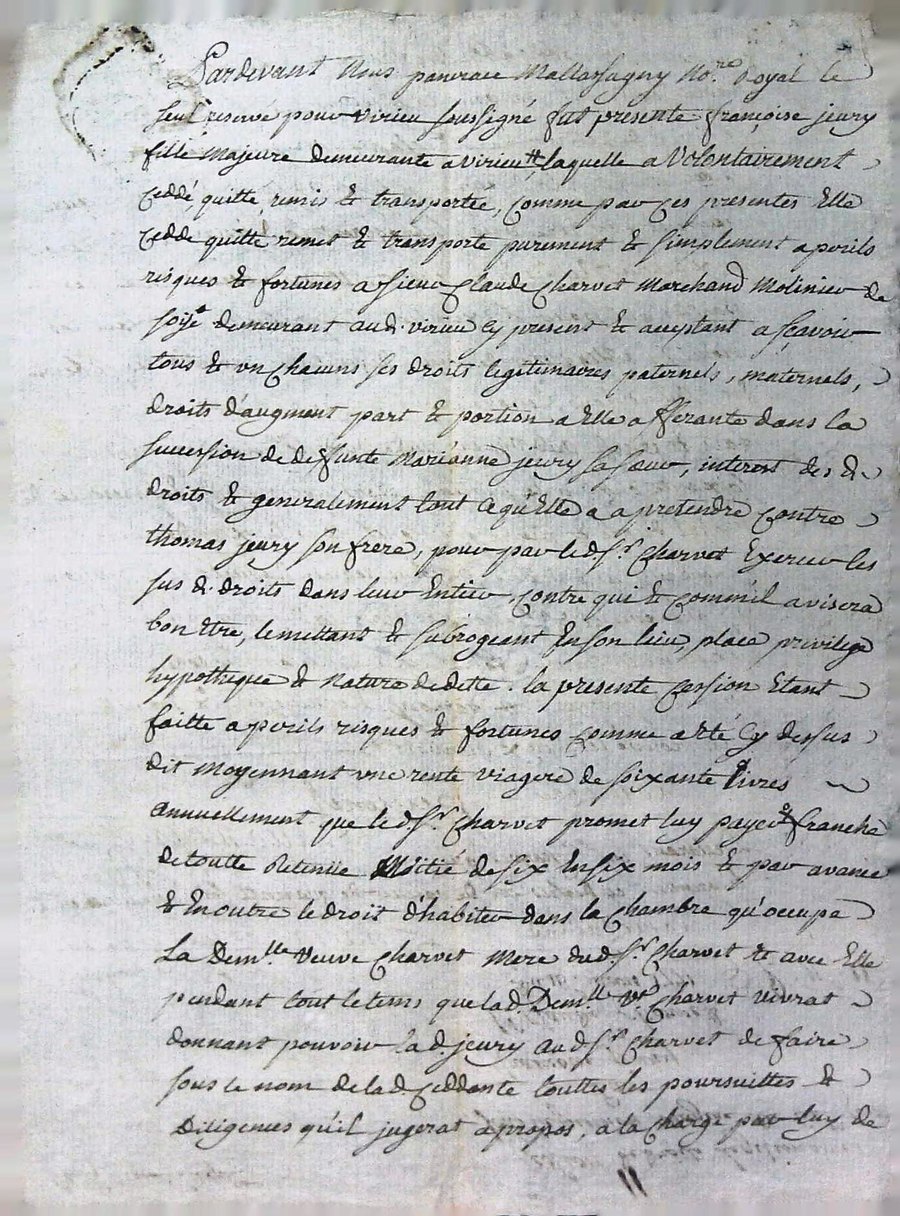 Pardevant Nous pancrace Mallassagny No.re Royal le
seul reservé pour virieu soussigné fut presente françoise jeury
fille majeure demeurante a virieu laquelle a volontairement
ceddé, quitté, remi & transportée, comme par ces presentes Elle
cedde quitte remet & transporte purement & simplement a perils
risques & fortunes a sieur Claude Charvet Marchand Molinier de
soije demeurant aud. virieu cy present & aceptant a sçavoir
tous & vn chacuns ses droits legitimaires paternels, maternels,
droits d'augment part & portion a Elle afferante dans la
succession de deffunte Marianne jeury sa sœur, interest des d.
droits & generalement tout ce qu'Elle a a pretendre contre
thomas jeury son frere, pour par le d. sr. Charvet Exercer les
sus d. droits dans leur Entier, contre qui & comm'il avisera
bon Etre, le mettant & subrogeant En son lieu, place privilege
hypotheque & nature de dette. la presente cession Etant
faitte a perils risques & fortunes comme a eté cy dessus
dit moyennant vne rente viagere de soixante livres
annuellement que le d. sr. Charvet promet luy payer & franche
de toutte Retenüe Moitié de six En six mois & par avance
& En outre le droit d'habiter dans la chambre qu'occupe
La Dem.lle veuve Charvet Mere dud. sr. Charvet & avec Elle
pendant tout le tems que lad. Dem.lle ve. Charvet vivrat
donnant pouvoir la d. jeury aud. sr. Charvet de faire
sous le nom de la d. ceddante touttes les poursuittes &
Diligences qu'il jugerat a propos, a la charge par luy de